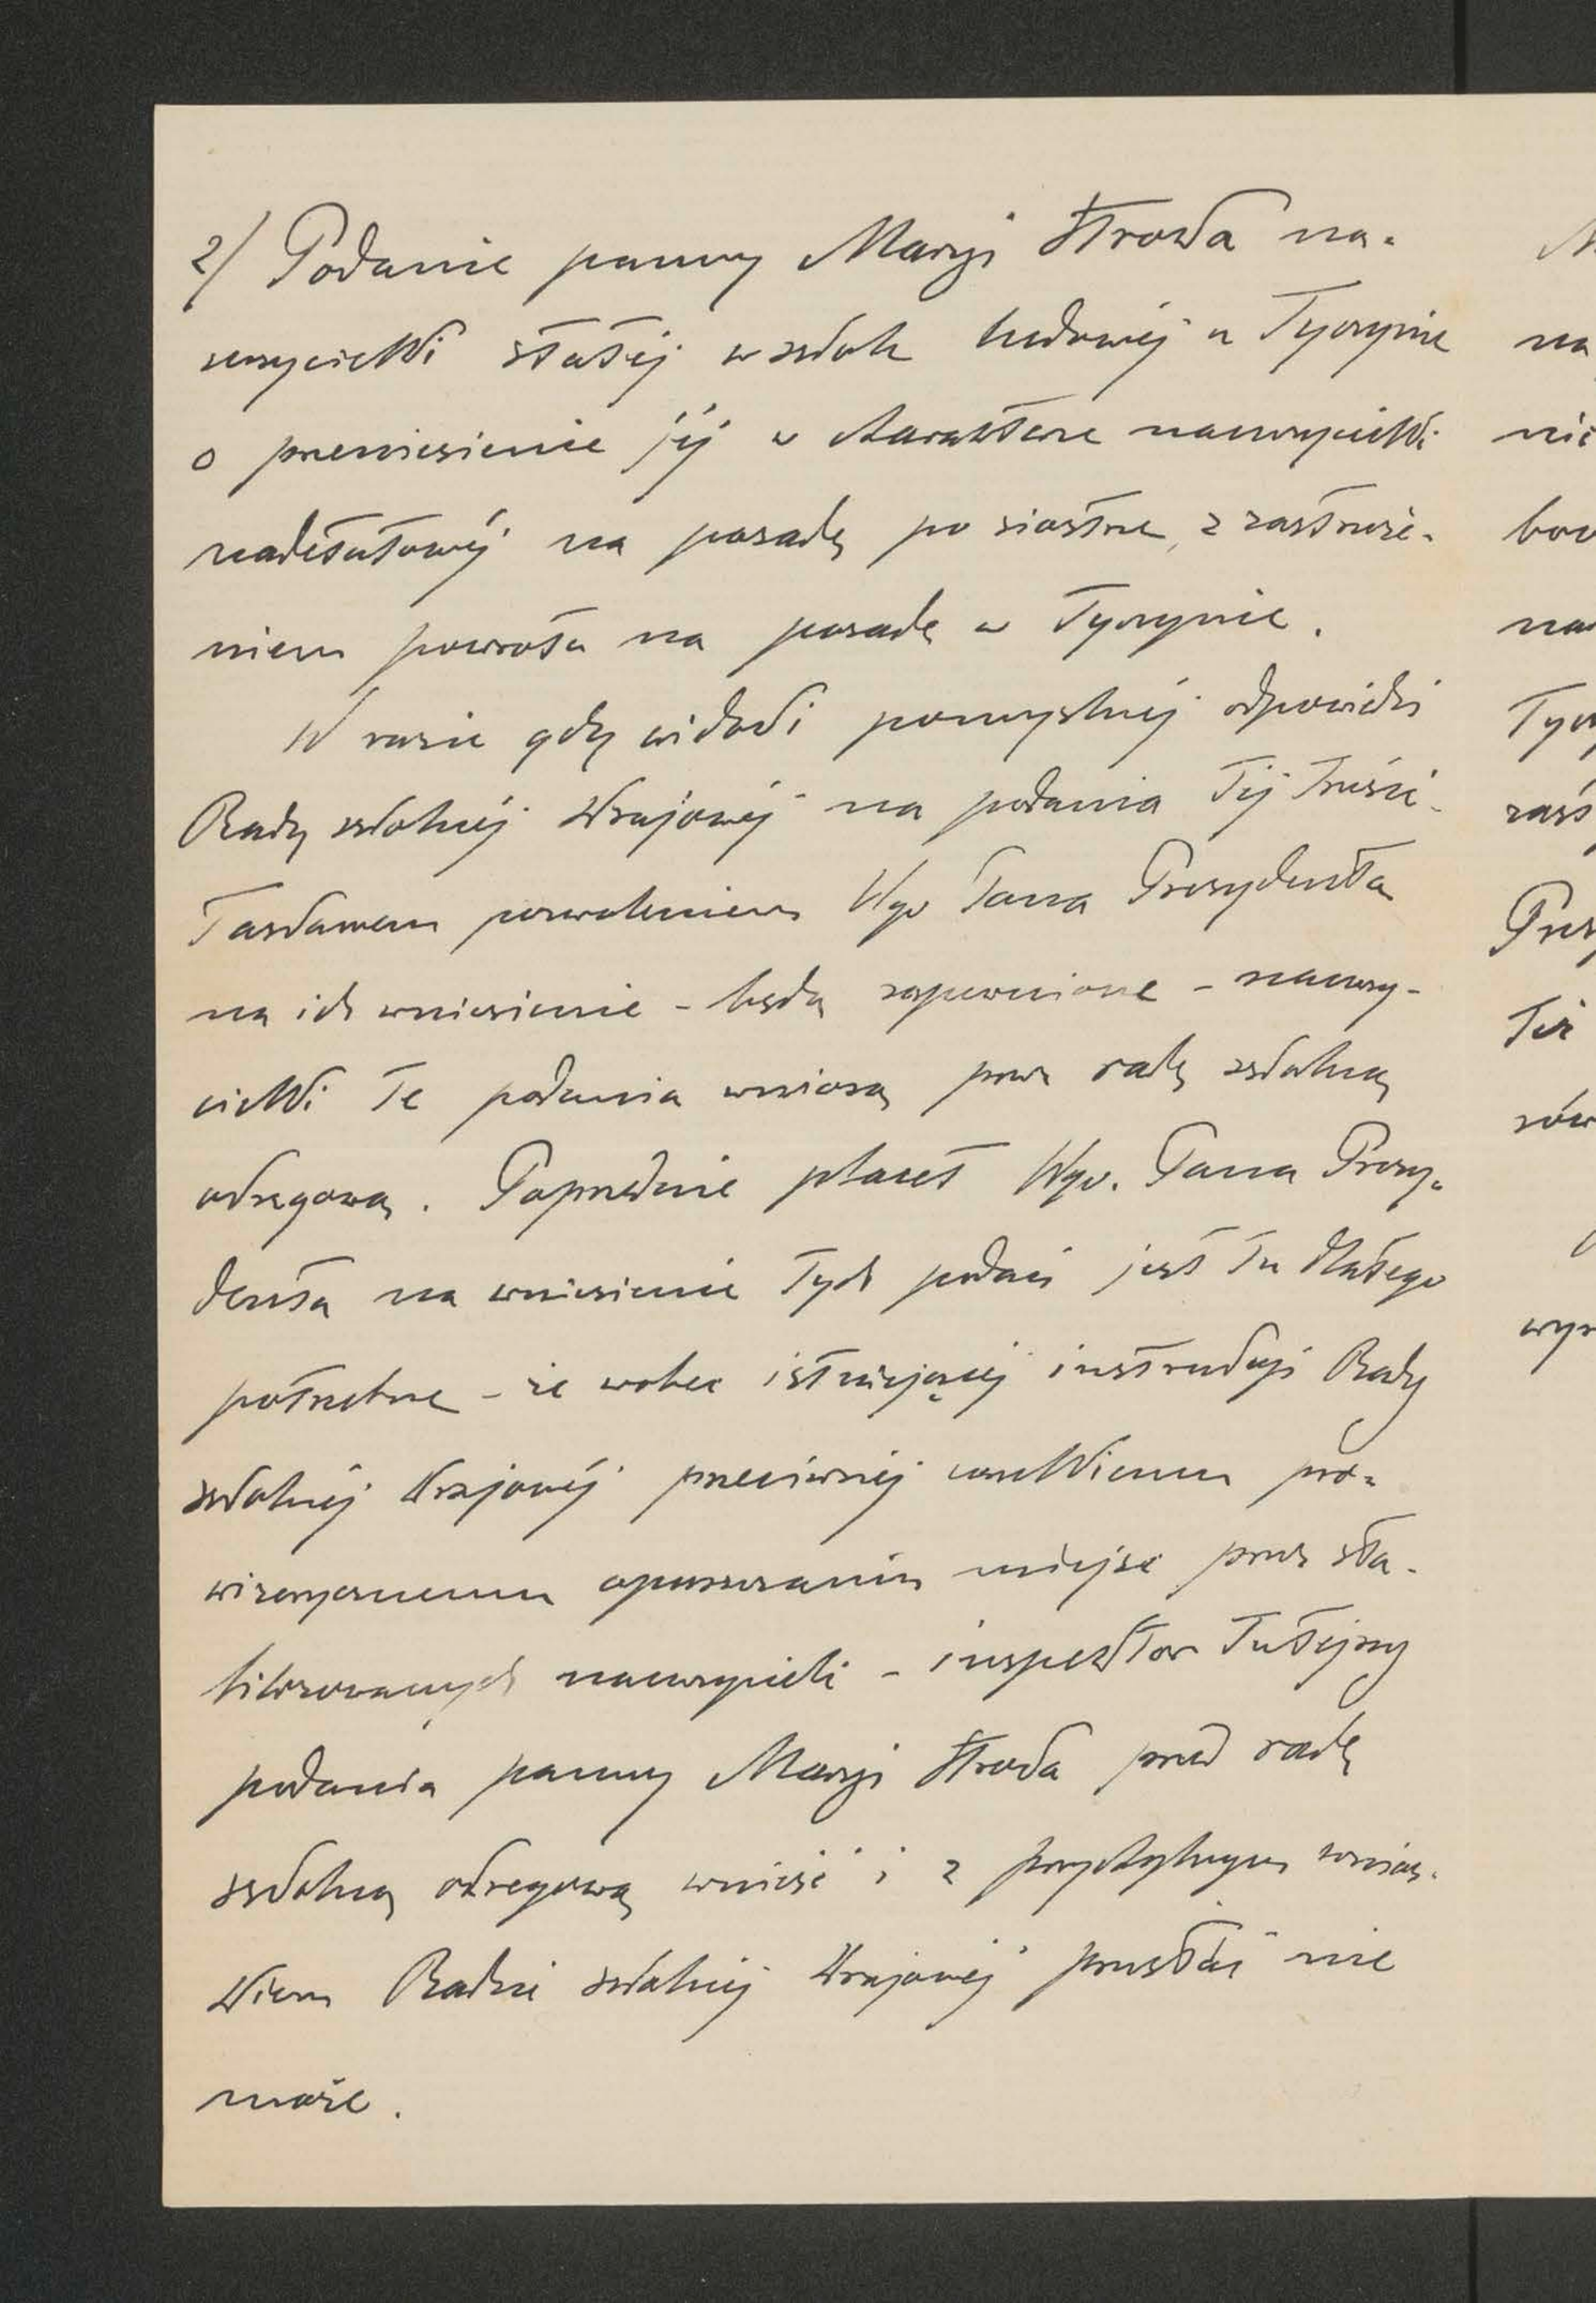 2/ Podanie panny Maryi Kroka na-
uczycielki stałéj w szkole ludowéj w Tyczynie
o przeniesienie jéj w charakterze nauczycielki
nadetatowéj na posadę po siostrze, z zastrzeże-
niem powrotu na posadę w Tyczynie.
W razie gdy widoki pomyślnéj odpowiedzi
Rady szkolnéj krajowéj na podania téj treści
łaskawem zezwoleniem Wgo Pana Prezydenta
na ich wniesienie - będą zapewnione - nauczy-
cielki te podania wniosą przez radę szkolną
okręgową. Poprzednie placet Wgo. Pana Prezy-
denta na wniesienie tych podań jest tu dlatego
potrzebne - że wobec istniejącéj instrukcyi Rady
szkolnéj krajowéj przeciwnéj wszelkiemu pro-
wizorycznemu opuszczaniu miejsc przez sta-
bilizowanych nauczycieli - inspektor tutejszy
podania panny Maryi Kroka przed radę
szkolną okręgową wnieść i z przychylnym wnios-
kiem Radzie szkolnéj krajowéj przesłać nie
może.